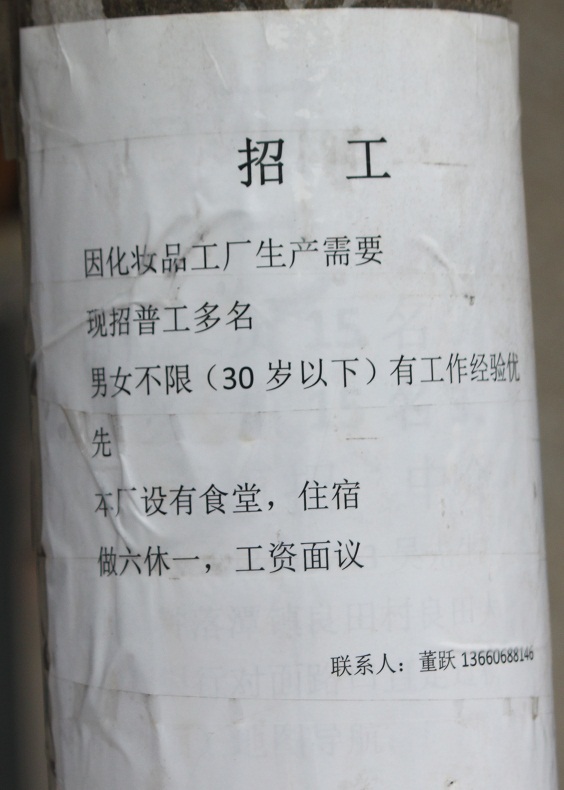 招 工
因化妆品工厂生产需要
现招普工多名
男女不限（30 岁以下）有工作经验优
先
本厂设有食堂，住宿
做六休一，工资面议
联系人：董跃 13660688146